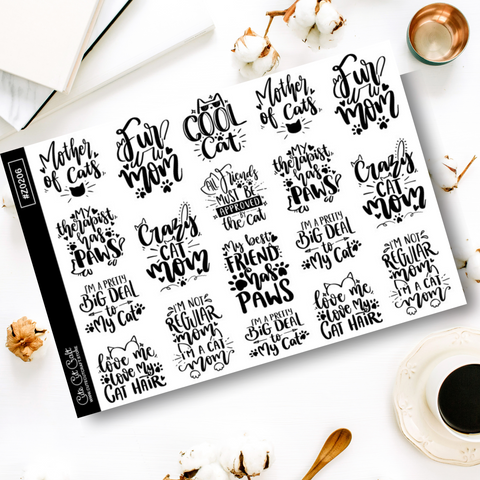 #Z0206
Mother
of Cats
Fur
MOM
COOL
Cat
Mother
of Cats
Fur
MOM
MY
therapist
has
PAWS
Crazy
CAT
MOM
All Friends
MUST BE
APPROVED
by
the Cat
MY
therapist
has
PAWS
Crazy
CAT
MOM
I'M A PRETTY
BIG DEAL
to
My Cat
I'M NOT
REGULAR
MOM,
I'M A CAT
MOM
My best
FRIEND
Has
PAWS
I'M A PRETTY
BIG DEAL
to
My Cat
I'M NOT
REGULAR
MOM,
I'M A CAT
MOM
love me,
love My
CAT HAIR
I'M A PRETTY
BIG DEAL
to
My Cat
love me,
love My
CAT HAIR